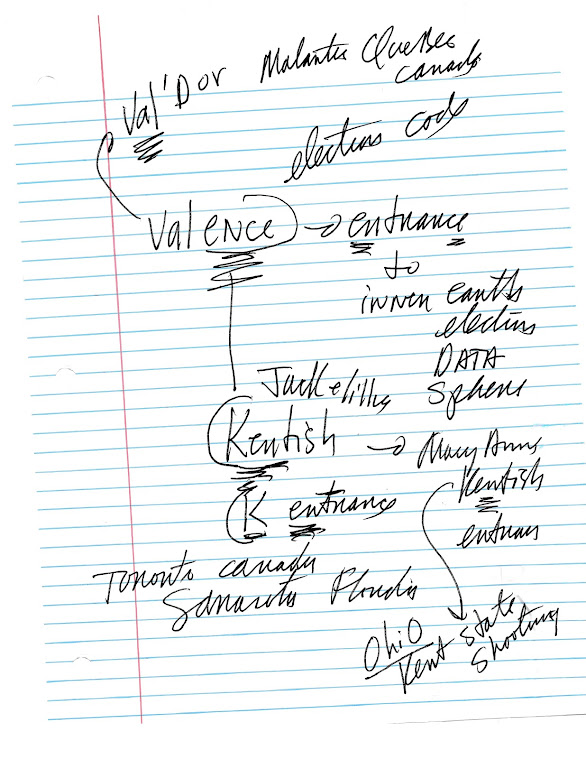 Val'Dor Malartic Quebec
canada
electrons code
Valence → entrance
to
innen earths
electrons
DATA
Sphere
Jack
Kentish → Mary Anne
Kentish
K entrance
entrance
Toronto canada
Sarasota Florida
Ohio
Kent State
Shooting